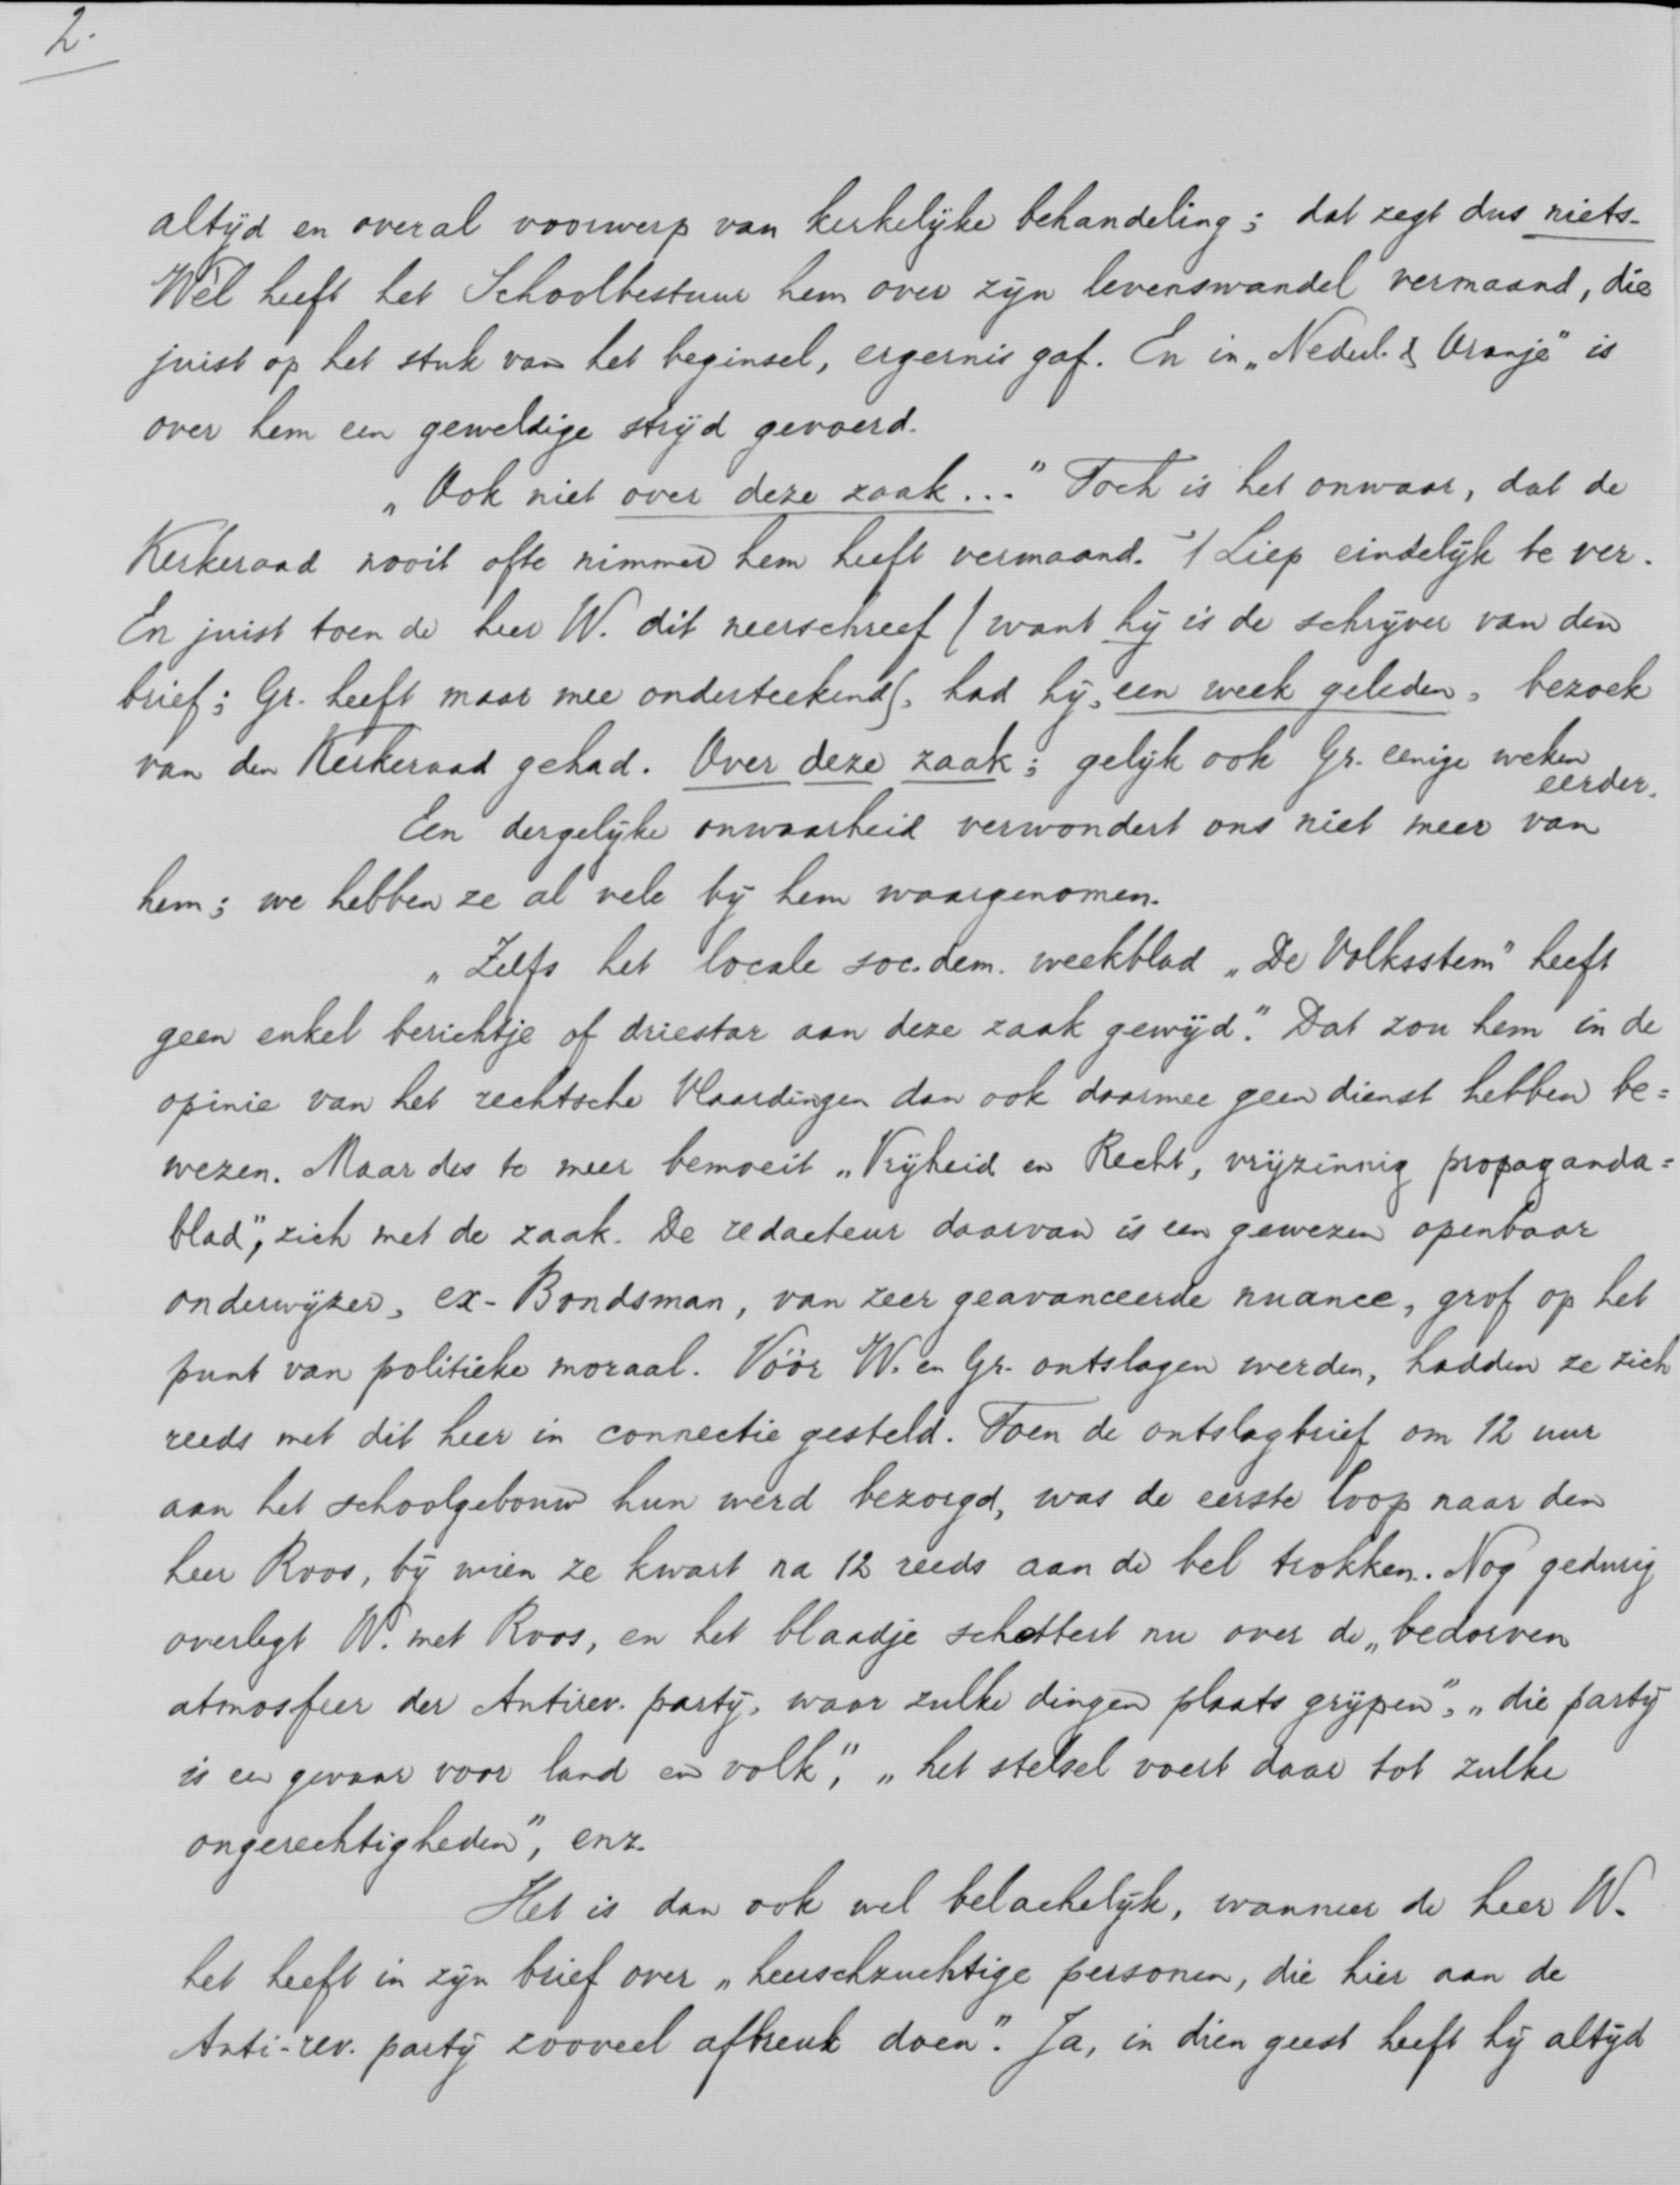 2.
altijd en overal voorwerp van kerkelijke behandeling; dat zegt dus niets.
Wèl heeft het Schoolbestuur hem over zijn levenswandel vermaand, die
juist op het stuk van het beginsel, ergernis gaf. En in „Nederl. & Oranje" is
over hem een geweldige strijd gevoerd.
„Ook niet over deze zaak..." Toch is het onwaar, dat de
Kerkeraad nooit ofte nimmer hem heeft vermaand. 't Liep eindelijk te ver.
En juist toen de heer W. dit neerschreef (want hij is de schrijver van den
brief; Gr. heeft maar mee onderteekend), had hij, een week geleden, bezoek
van den Kerkeraad gehad. Over deze zaak; gelijk ook Gr. eenige weken
eerder.
Een dergelijke onwaarheid verwondert ons niet meer van
hem; we hebben ze al vele bij hem waargenomen.
„Zelfs het locale soc. dem. weekblad „De Volksstem" heeft
geen enkel berichtje of driestar aan deze zaak gewijd." Dat zou hem in de
opinie van het rechtsche Vlaardingen dan ook daarmee geen dienst hebben be=
wezen. Maar des te meer bemoeit „Vrijheid en Recht, vrijzinnig propaganda=
blad", zich met de zaak. De redacteur daarvan is een gewezen openbaar
onderwijzer, ex-Bondsman, van zeer geavanceerde nuance, grof op het
punt van politieke moraal. Vóór W. en Gr. ontslagen werden, hadden ze zich
reeds met dit heer in connectie gesteld. Toen de ontslagbrief om 12 uur
aan het schoolgebouw hun werd bezorgd, was de eerste loop naar den
heer Roos, bij wien ze kwart na 12 reeds aan de bel trokken. Nog gedurig
overlegt W. met Roos, en het blaadje schettert nu over de „bedorven
atmosfeer der Antirev. partij, waar zulke dingen plaats grijpen", „die partij
is een gevaar voor land en volk", „het stelsel voert daar tot zulke
ongerechtigheden", enz.
Het is dan ook wel belachelijk, wanneer de heer W.
het heeft in zijn brief over „heerschzuchtige personen, die hier aan de
Anti-rev. partij zooveel afbreuk doen". Ja, in dien geest heeft hij altijd